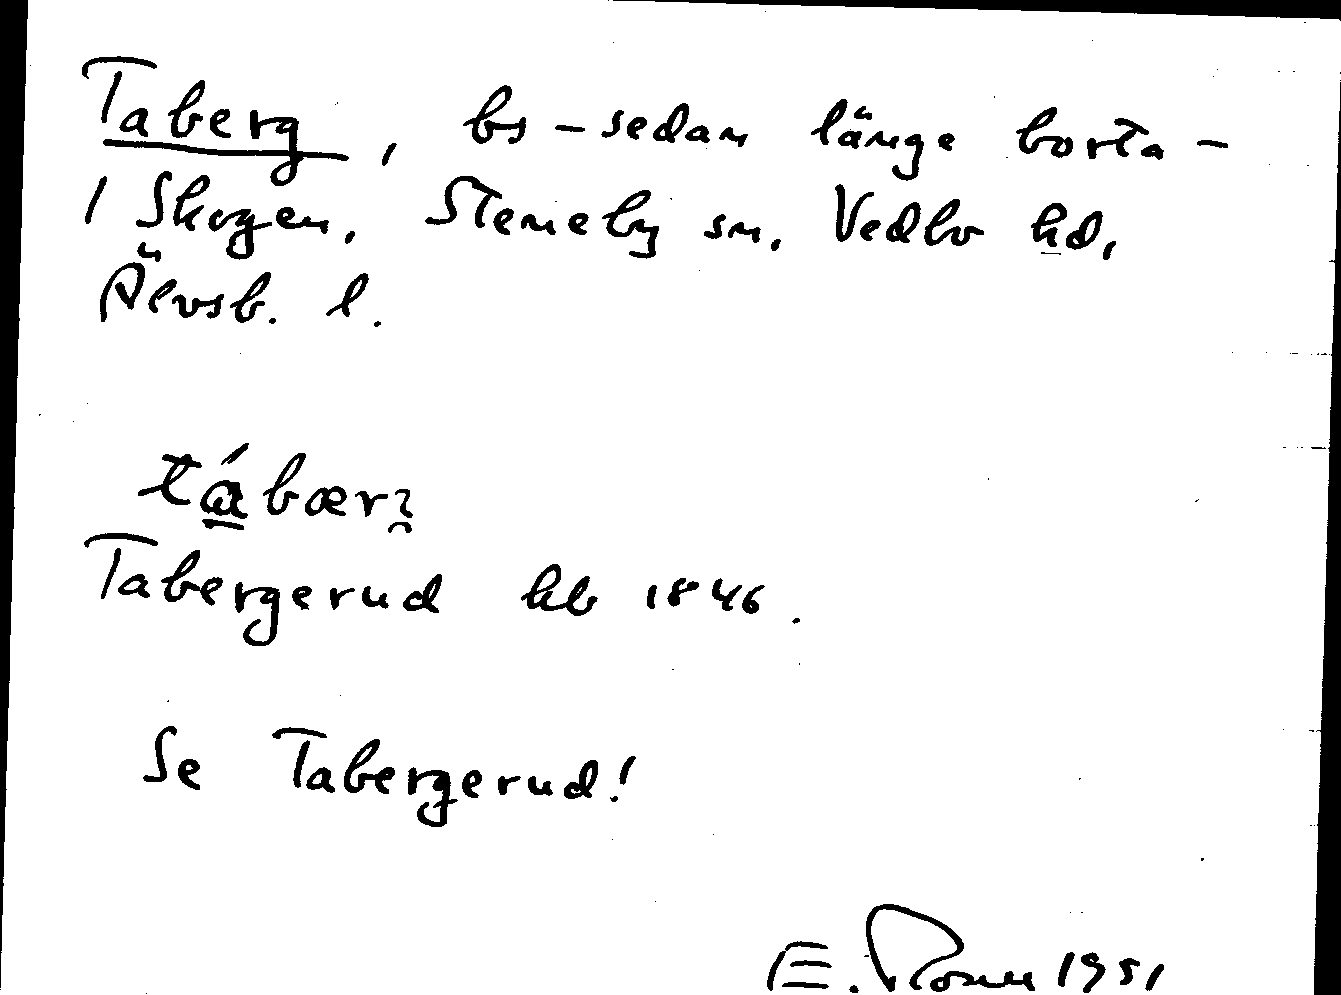 Taberg, bs – sedan länge borta –
/ Skogen, Steneby sn, Vedbo hd,
Älvsb. l.
tábær
Tabergerud hb 1846.
Se Tabergerud!
E. 1951